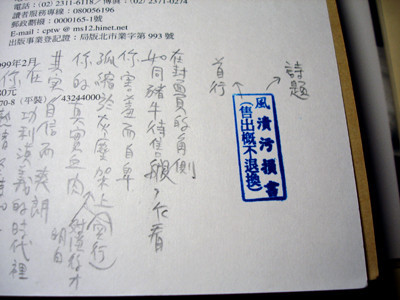 (02) 2311-6118/傳真:(02) 2371-0274
讀者服務專線:080056196
郵政劃撥:0000165-1號
E-mail:cptw @ ms12.hinet.net
出版事業登記證:局版北市業字第 993 號
99年2月
80元
70-8(平裝) 43244000
詩題
首行
風漬污損書
(售出概不退換)
在封面頁的角側
如同豬牛待售般,
你害羞而自卑
孤縮於灰塵架上
(空行)
你的真實血肉
明白
其實自信而爽朗
你在功利 義的時代裡